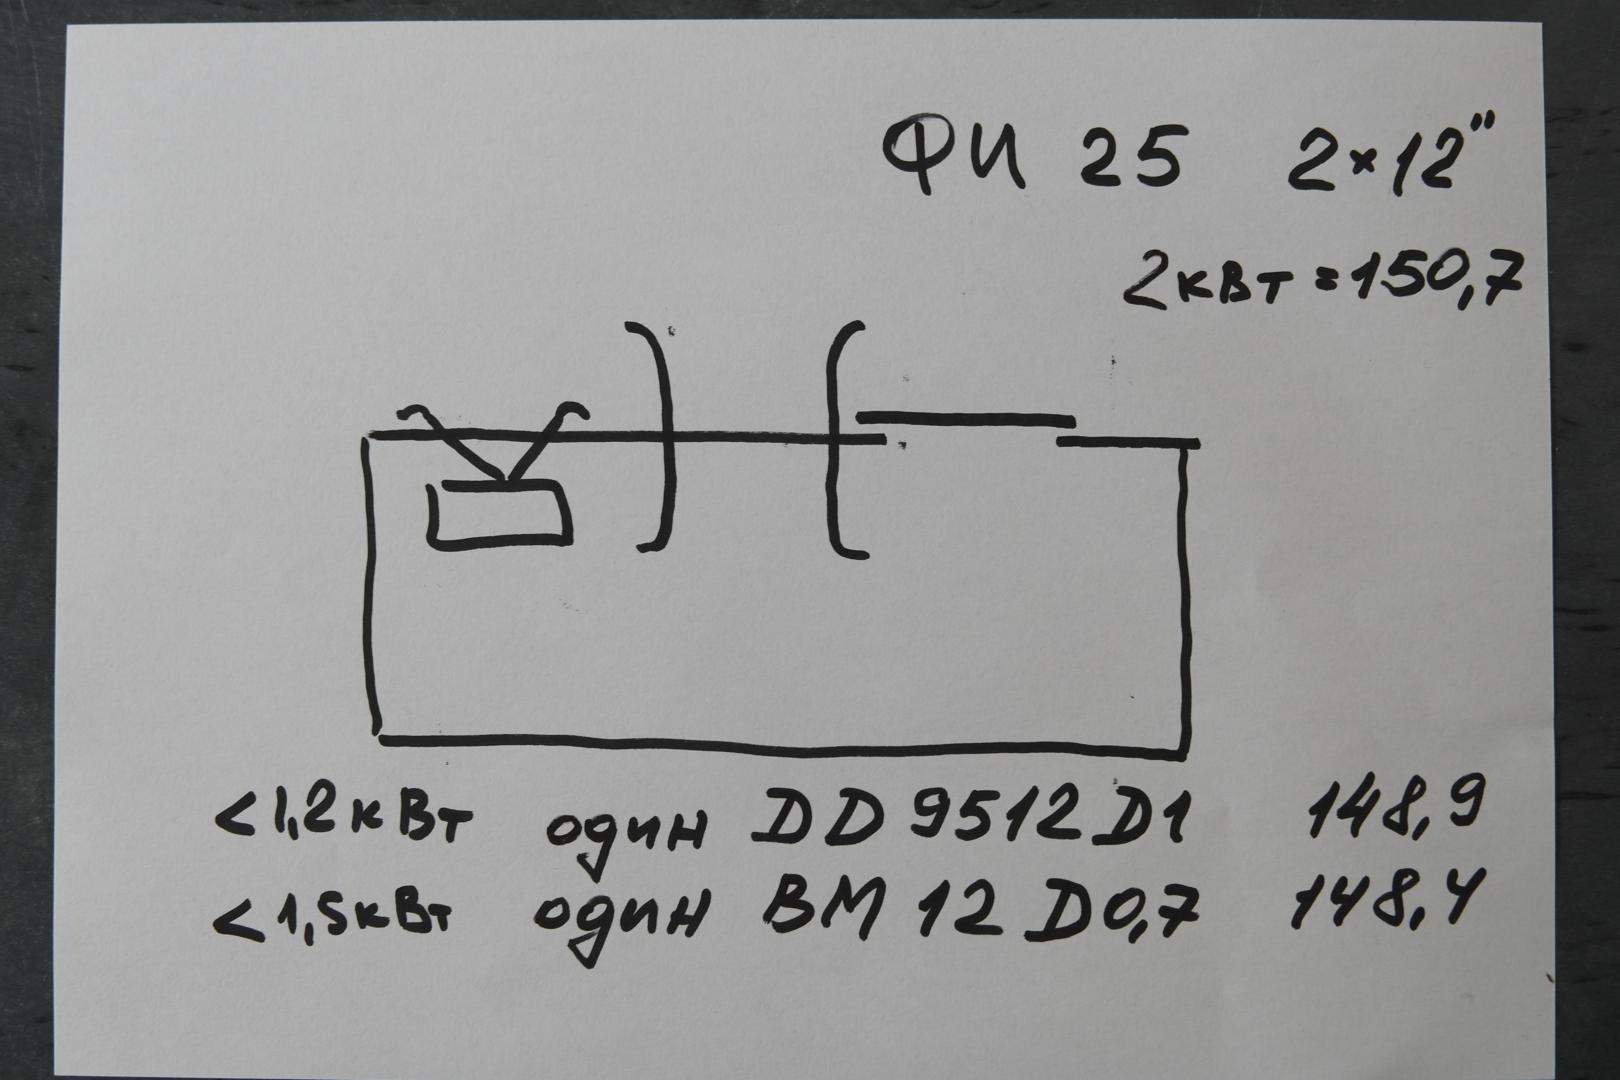 ФИ 25 2×12"
2кВт = 150,7
<1,2кВт один DD 9512 D1 148,9
<1,5кВт один BM 12 D0,7 148,4